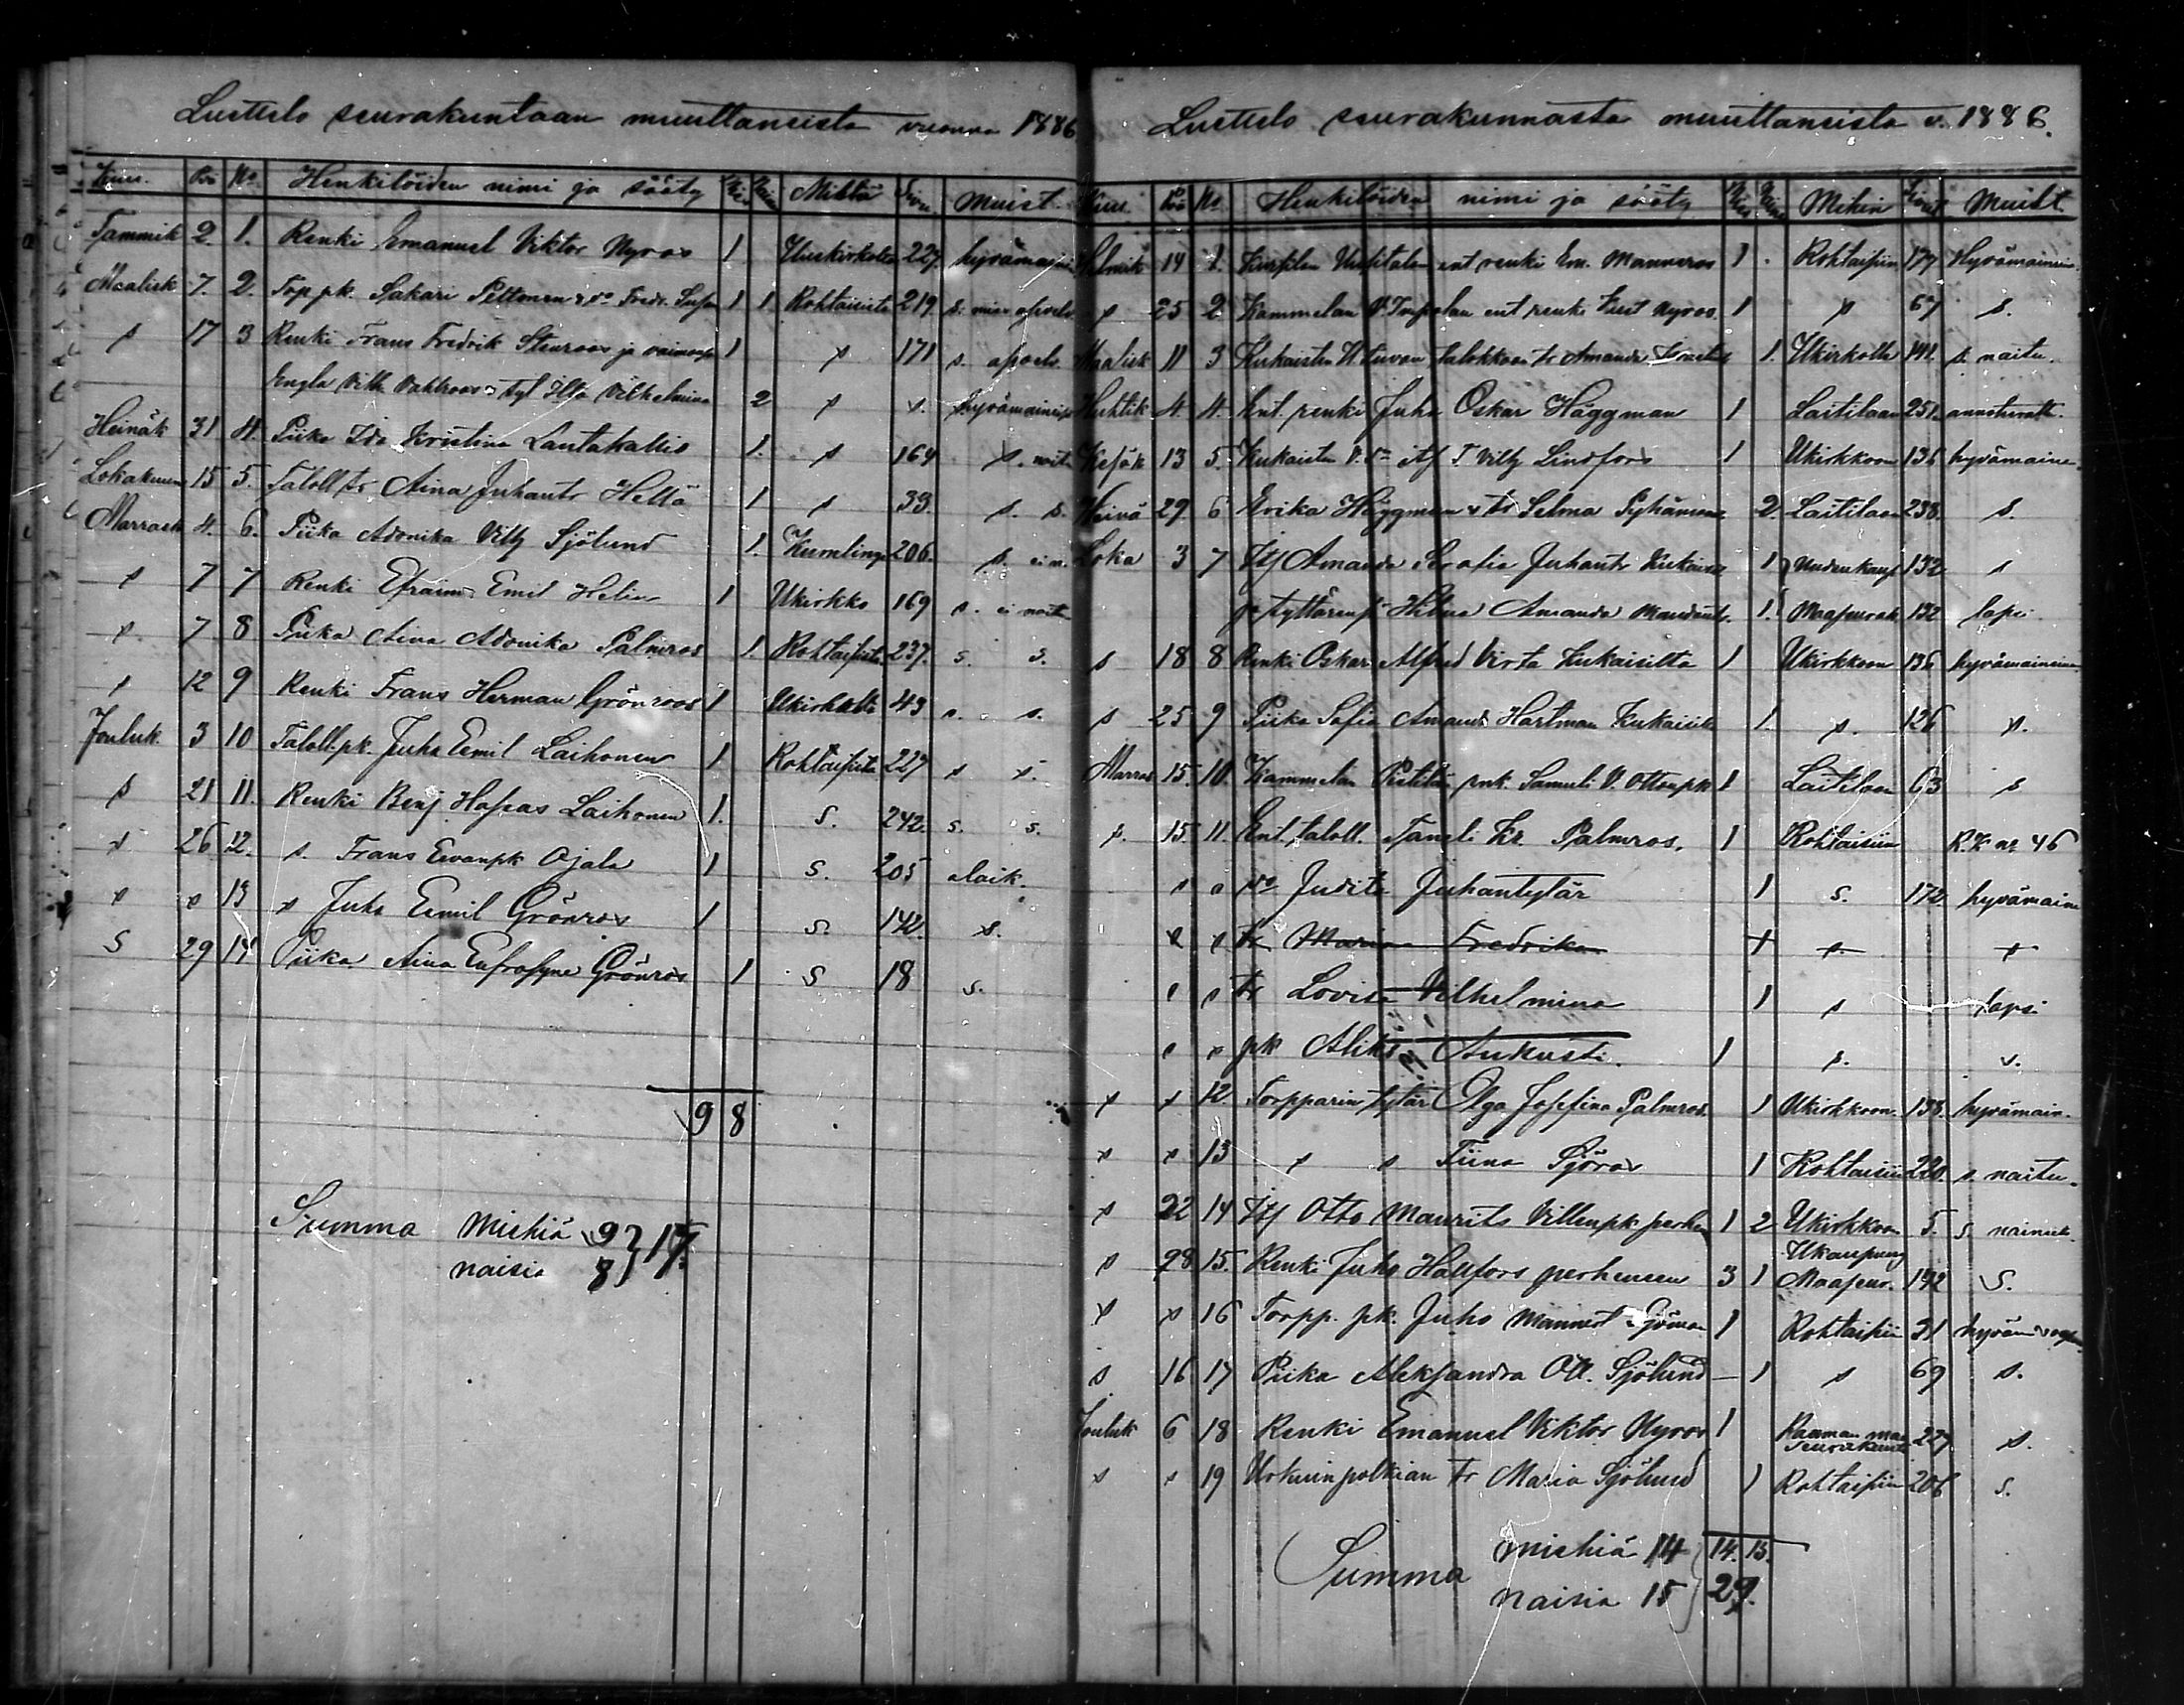 Luettelo seurakuntaan muuttaneista vuonna 1886
Kuu. Pvä No Henkilöiden nimi ja sääty Mistä Sivu Muist.
Tammik 2. 1. Renki Emanuel Viktor Nyros 1 Uuskirkolta 227. hyvämain
Maalisk 7. 2. Torp. pk. Sakari Peltonen & vo Fredr. 1 1 Kohtaisista 219
s 17 3 Renki Frans Fredrik Stenroos ja vaimonsa 1 s 171 s.
Engla Vilh. Vahlroos & tyt Ilta Vilhelmina 2 s s. hyvämaineisia
Heinäk 31 4. Piika Ida Kristina Lautakallio 1. s 164 s.
Lokakuun 15 5. Taloll. tr Aina Juhantr Heltä 1 s 33. s. s.
Marrask 4. 6. Piika Adonika Vilh Sjölund 1. Kumlinge 206. s. ei n.
s 7 7 Renki Efraim Emil Helin 1 Ukirkko 169 s. ei nait
s 7 8 Piika Aina Adonika Palmros 1. Kohtaisista 237. s. s.
s 12 9 Renki Frans Herman Grönroos 1 Ukirkolta 43 s. s.
Jouluk. 3 10 Taloll. pk. Juha Eemil Laihonen 1 Kohtaisista 227 s s.
s 21 11. Renki Benj. Hapas Laihonen 1. S. 242. s. s.
s 26 12. s. Frans Evanpk Ojala 1 S. 205 alaik.
s s 13 s Juho Eemil Grönros 1 S. 142. s.
S 29 14 Piika Aina Eufrosyne Grönros 1 S 18 s.
9 8
Summa Miehiä 9 } 17.
naisia 8
Luettelo seurakunnasta muuttaneista v. 1886.
Kuu. Pvä No Henkilöiden nimi ja sääty Mihin Sivu Muist.
Helmik 14 1. ent renki Em. Manneros 1 Kohtaisiin 177 Hyvämainein.
s 25 2. Kammelan ent renki Kust Nyros. 1 s 67 s.
Maalisk 11 3 Kukaisten talokkaan tr Amanda 1. Ukirkolle 141. s. naitu.
Huhtik 4. 4. Ent. renki Juha Oskar Häggman 1 Laitilaan 251.
Kesäk 13 5. Kukaisten itf F. Vilh Lindfors 1 Ukirkkoon 136 hyvämaine
Heinä 29. 6 Erika Häggman & tr Selma 2. Laitilaan 238. s.
Loka 3 7 Itf Amanda Serafia Juhantr Kukainen 1 Uudenkaup 132 s
ja tyttärensä Hilma Amanda 1. Maaseurak 132 lapsi
s 18 8 Renki Oskar Alfred Virta Kukaisilta 1 Ukirkkoon 136 hyvämaineinen
s 25 9 Piika Sofia Amanda Hartman Kukaisilta 1. s. 126 s.
Marras 15. 10. Kammelan Samuli V. Ottonpk 1 Laitilaan 63 s
s. 15. 11. Ent. taloll. Taneli Kr. Palmros. 1 Kohtaisiin R. K no 46
s s vo Judita Juhantytär 1 s. 172 hyvämaine
s s tr Maria Fredrika 1 s. s
s s tr Lovisa Vilhelmina 1 s lapsi
s s pk Aliks Aukusti. 1 s. s.
s s 12 Torpparin tytär Olga Josefina Palmros. 1 Ukirkkoon. 138. hyvämain.
s s 13 s s Tiina Sjöros 1 Kohtaisiin 220. s. naitu.
s 22 14 Itf Otto Maurits Villenpk perhe 1 2 Ukirkkoon 5. s.
s 28 15. Renki Juho Hallfors perheineen 3 1 Ukaupung Maaseur. 192 S.
s s 16 Torpp. pk. Juho Mannert Sjöman 1 Kohtaisiin 31
s 16 17 Piika Aleksandra Ott. Sjölund — 1 s 69 s.
Jouluk 6 18 Renki Emanuel Viktor Nyros 1 Rauman maaseurakunta 227 s.
s s 19 Urkuinpolkian tr Maria Sjölund 1 Kohtaisiin 206 s.
Summa miehiä 14 14. 15.
naisia 15 29.